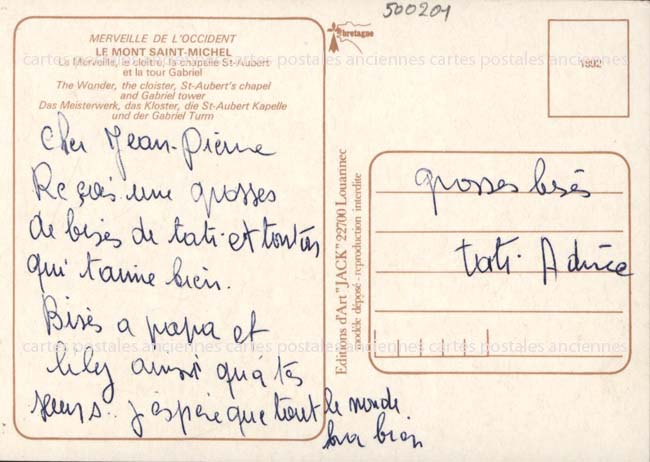 500201
MERVEILLE DE L'OCCIDENT
LE MONT SAINT-MICHEL
La Merveille, le cloître, la chapelle St-Aubert
et la tour Gabriel
The Wonder, the cloister, St-Aubert's chapel
and Gabriel tower
Das Meisterwerk, das Kloster, die St-Aubert Kapelle
und der Gabriel Turm
bretagne
1992
cartes postales anciennes cartes postales anciennes cartes postales anciennes
Cher Jean-Pierre
Reçois une grosses
de bises de tati et tonton
qui t'aime bien.
Bises a papa et
lily ainsi qu'à tes
sœurs.. j'espère que tout le monde
va bien
cartes postales anciennes cartes postales anciennes cartes postales anciennes
Editions d'Art "JACK" 22700 Louannec
modèle déposé - reproduction interdite
grosses bises
tati